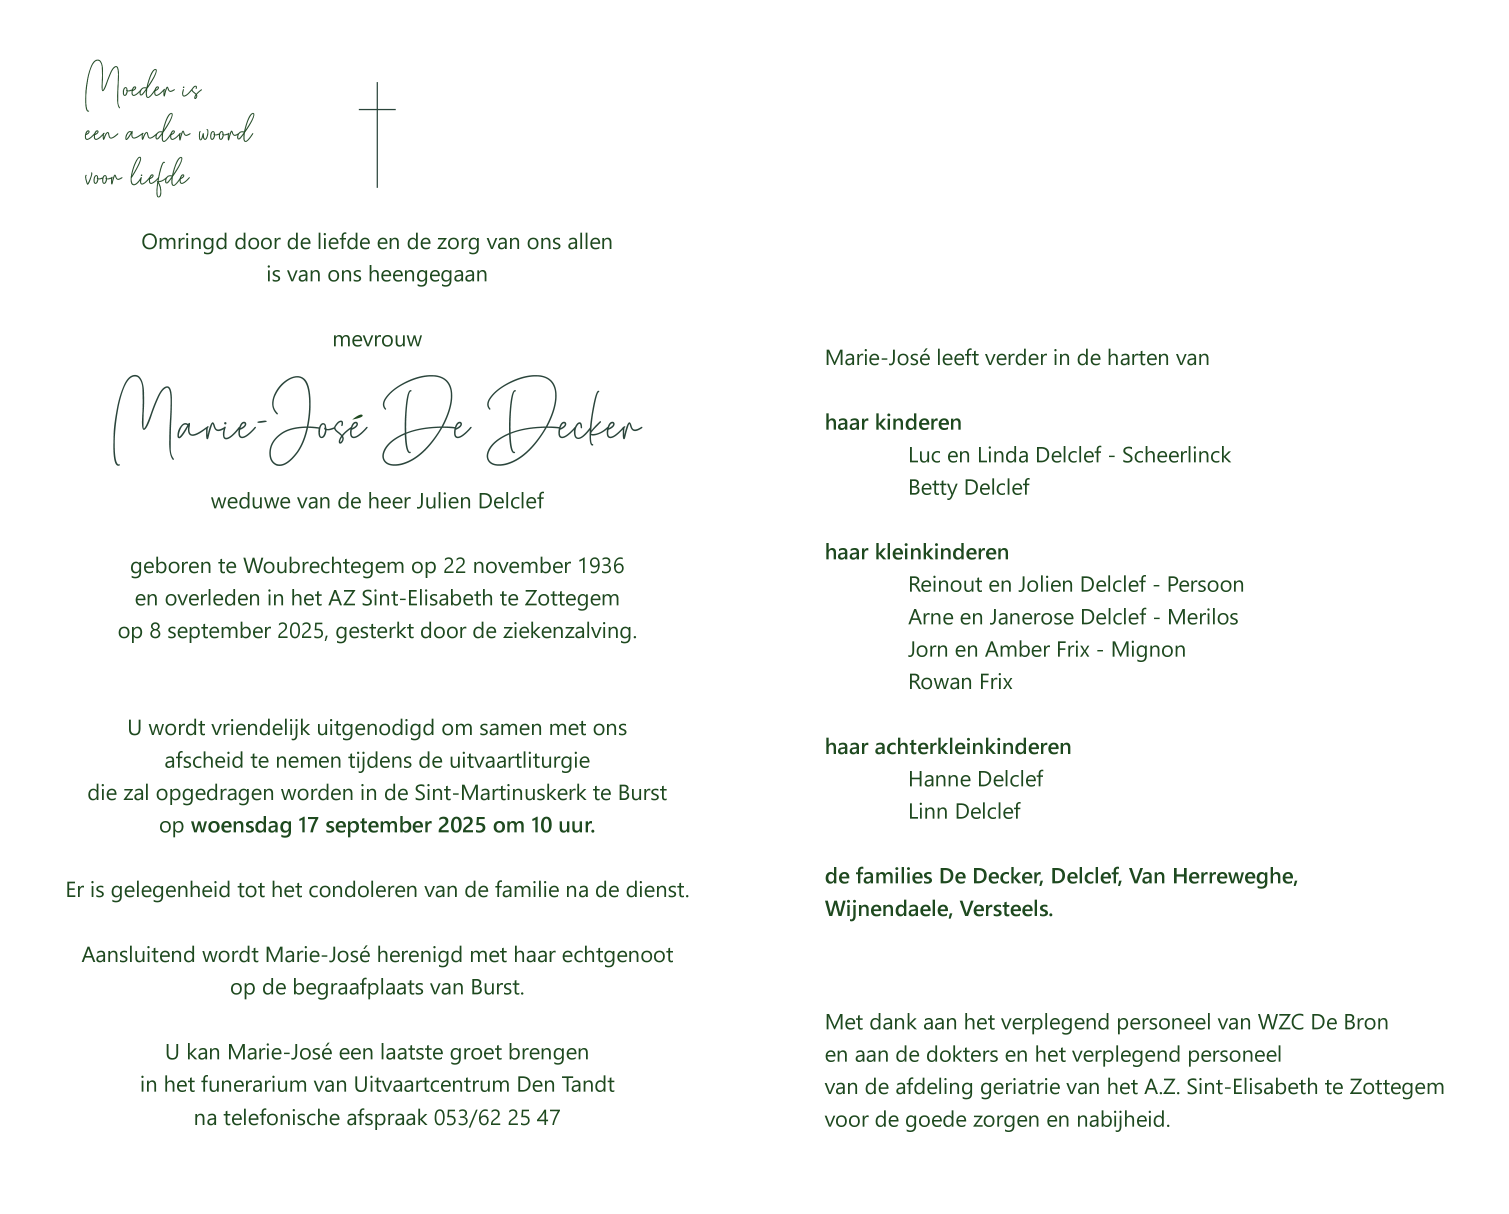 Moeder is
een ander woord
voor liefde
Omringd door de liefde en de zorg van ons allen
is van ons heengegaan
mevrouw
Marie-José De Decker
weduwe van de heer Julien Delclef
geboren te Woubrechtegem op 22 november 1936
en overleden in het AZ Sint-Elisabeth te Zottegem
op 8 september 2025, gesterkt door de ziekenzalving.
U wordt vriendelijk uitgenodigd om samen met ons
afscheid te nemen tijdens de uitvaartliturgie
die zal opgedragen worden in de Sint-Martinuskerk te Burst
op woensdag 17 september 2025 om 10 uur.
Er is gelegenheid tot het condoleren van de familie na de dienst.
Aansluitend wordt Marie-José herenigd met haar echtgenoot
op de begraafplaats van Burst.
U kan Marie-José een laatste groet brengen
in het funerarium van Uitvaartcentrum Den Tandt
na telefonische afspraak 053/62 25 47
Marie-José leeft verder in de harten van
haar kinderen
Luc en Linda Delclef - Scheerlinck
Betty Delclef
haar kleinkinderen
Reinout en Jolien Delclef - Persoon
Arne en Janerose Delclef - Merilos
Jorn en Amber Frix - Mignon
Rowan Frix
haar achterkleinkinderen
Hanne Delclef
Linn Delclef
de families De Decker, Delclef, Van Herreweghe,
Wijnendaele, Versteels.
Met dank aan het verplegend personeel van WZC De Bron
en aan de dokters en het verplegend personeel
van de afdeling geriatrie van het A.Z. Sint-Elisabeth te Zottegem
voor de goede zorgen en nabijheid.